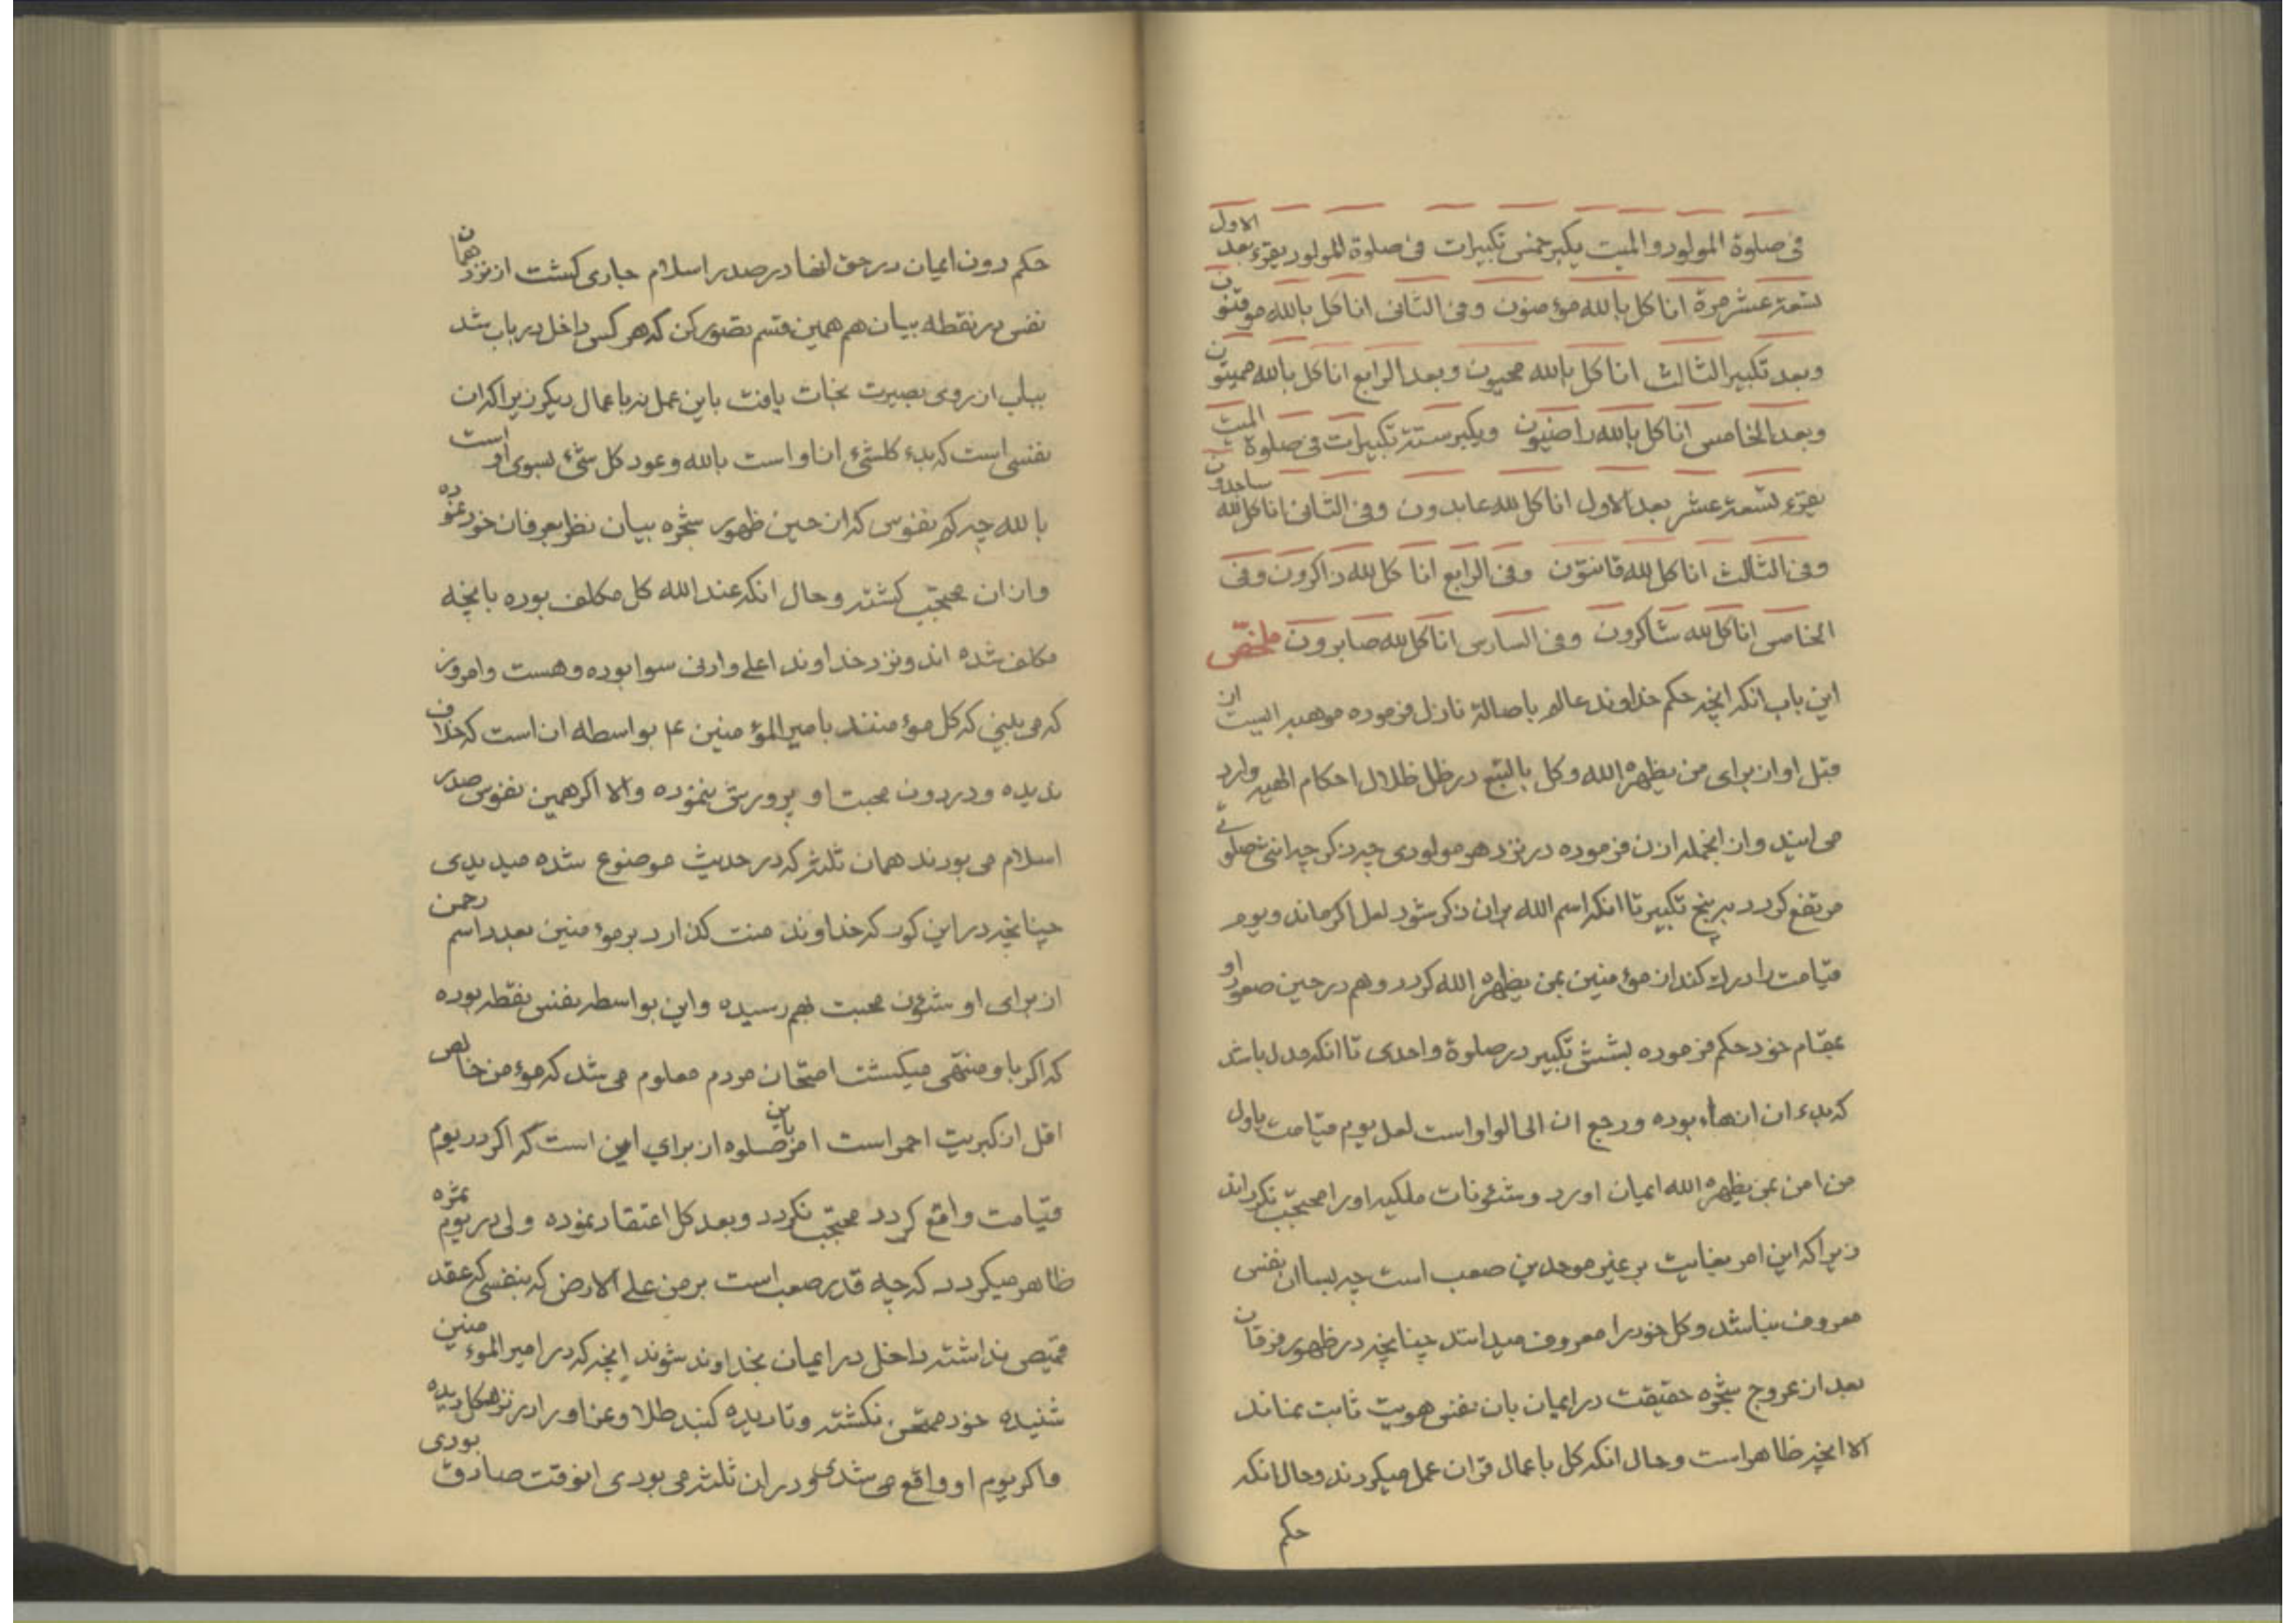 فی صلوة المولود والمیت یکبر خمس تکبیرات فی صلوة المولود یقرء بعد الاول
تسعة عشر مرة اناکل بالله مؤمنون وفی الثانی اناکل بالله موقنون
وبعد تکبیر الثالث اناکل بالله محیون وبعد الرابع اناکل بالله ممیتون
وبعد الخامس اناکل بالله راضیون ویکبر ستة تکبیرات فی صلوة المیت
یقرء تسعة عشر بعد الاول اناکل لله عابدون وفی الثانی اناکل لله ساجدون
وفی الثالث اناکل لله قانتون وفی الرابع انا کل لله ذاکرون وفی
الخامس اناکل لله شاکرون وفی السادس اناکل لله صابرون ملخص
این باب انکه انچه حکم خداوند عالم باصالة نازل فرموده موهبه ایست از
قبل او از برای من یظهره الله وکل بالتبع در ظل ظلال احکام الهیه وارد
می ایند وان انجمله اذن فرموده در نزد هر مولودی چه ذکر چه انثی صلوتی
مرتفع کردد به پنج تکبیر تا انکه اسم الله بران ذکر شود لعل اکر ماند ویوم
قیامت را درك کند از مؤمنین بمن یظهره الله کردد وهم در حین صعود او
بمقام خود حکم فرموده بشش تکبیر در صلوة واحدی تا انکه مدل باشد
که بدء ان انهاء بوده ورجع ان الی الواو است لعل یوم قیامت باول
من امن بمن یظهره الله ایمان اورد وشئونات ملکیه اورا محتجب نکرداند
زیرا که این امر بغایت بر غیر موحدین صعب است چه بسا ان نفس
معروف نباشد وکل خود را معروف میدانند چنانچه در ظهور فرقان
بعد از عروج شجره حقیقت در ایمان بان نفس هویت ثابت نماند
الا انچه ظاهر است وحال انکه کل باعمال قران عمل میکردند وحال انکه
حکم
حکم دون ایمان در حق انها در صدر اسلام جاری کشت از نزد همان
نفس در نقطه بیان هم همین قسم تصور کن که هر کس داخل در باب شد
بباب از روی بصیرت نجات یافت باین عمل نه باعمال دیکر زیرا که ان
نفسی است که بدء کلشئ از او است بالله وعود کل شئ بسوی او است
بالله چه کم نفوس که از حین ظهور شجره بیان نظر بعرفان خود نموده
واز ان محتجب کشته وحال انکه عند الله کل مکلف بوده بانچه
مکلف شده اند ونزد خداوند اعلی وادنی سوا بوده وهست وامروز
که می بینی که کل مؤمنند بامیر المؤمنین ع بواسطه ان است که خلاف
ندیده ودر دون محبت او پرورش ننموده والا اکر همین نفوس صدر
اسلام می بودند همان ثلثه که در حدیث موضوع شده میدیدی
چنانچه در این کور که خداوند منت کذارد بر مؤمنین بعدد اسم رحمن
از برای او شئون محبت بهم رسیده واین بواسطه نفس نقطه بوده
که اکر باو منتهی میکشت امتحان مردم معلوم می شد که مؤمن خالص
اقل از کبریت احمر است امر صلوه باین از برای این است که اکر در یوم
قیامت واقع کردد محتجب نکردد وبعد کل اعتقاد نموده ولی در یوم ثمره
ظاهر میکردد که چه قدر صعب است بر من علی الارض که بنفسی که عقد
قمیصی نداشته داخل در ایمان بخداوند شوند انچه که در امیر المؤمنین
شنیده خود ممتحن نکشته وتا دیده کنبد طلا وعز او را در نزد کل دیده
واکر یوم او واقع می شدی ودر ان ثلثه می بودی انوقت صادق بودی